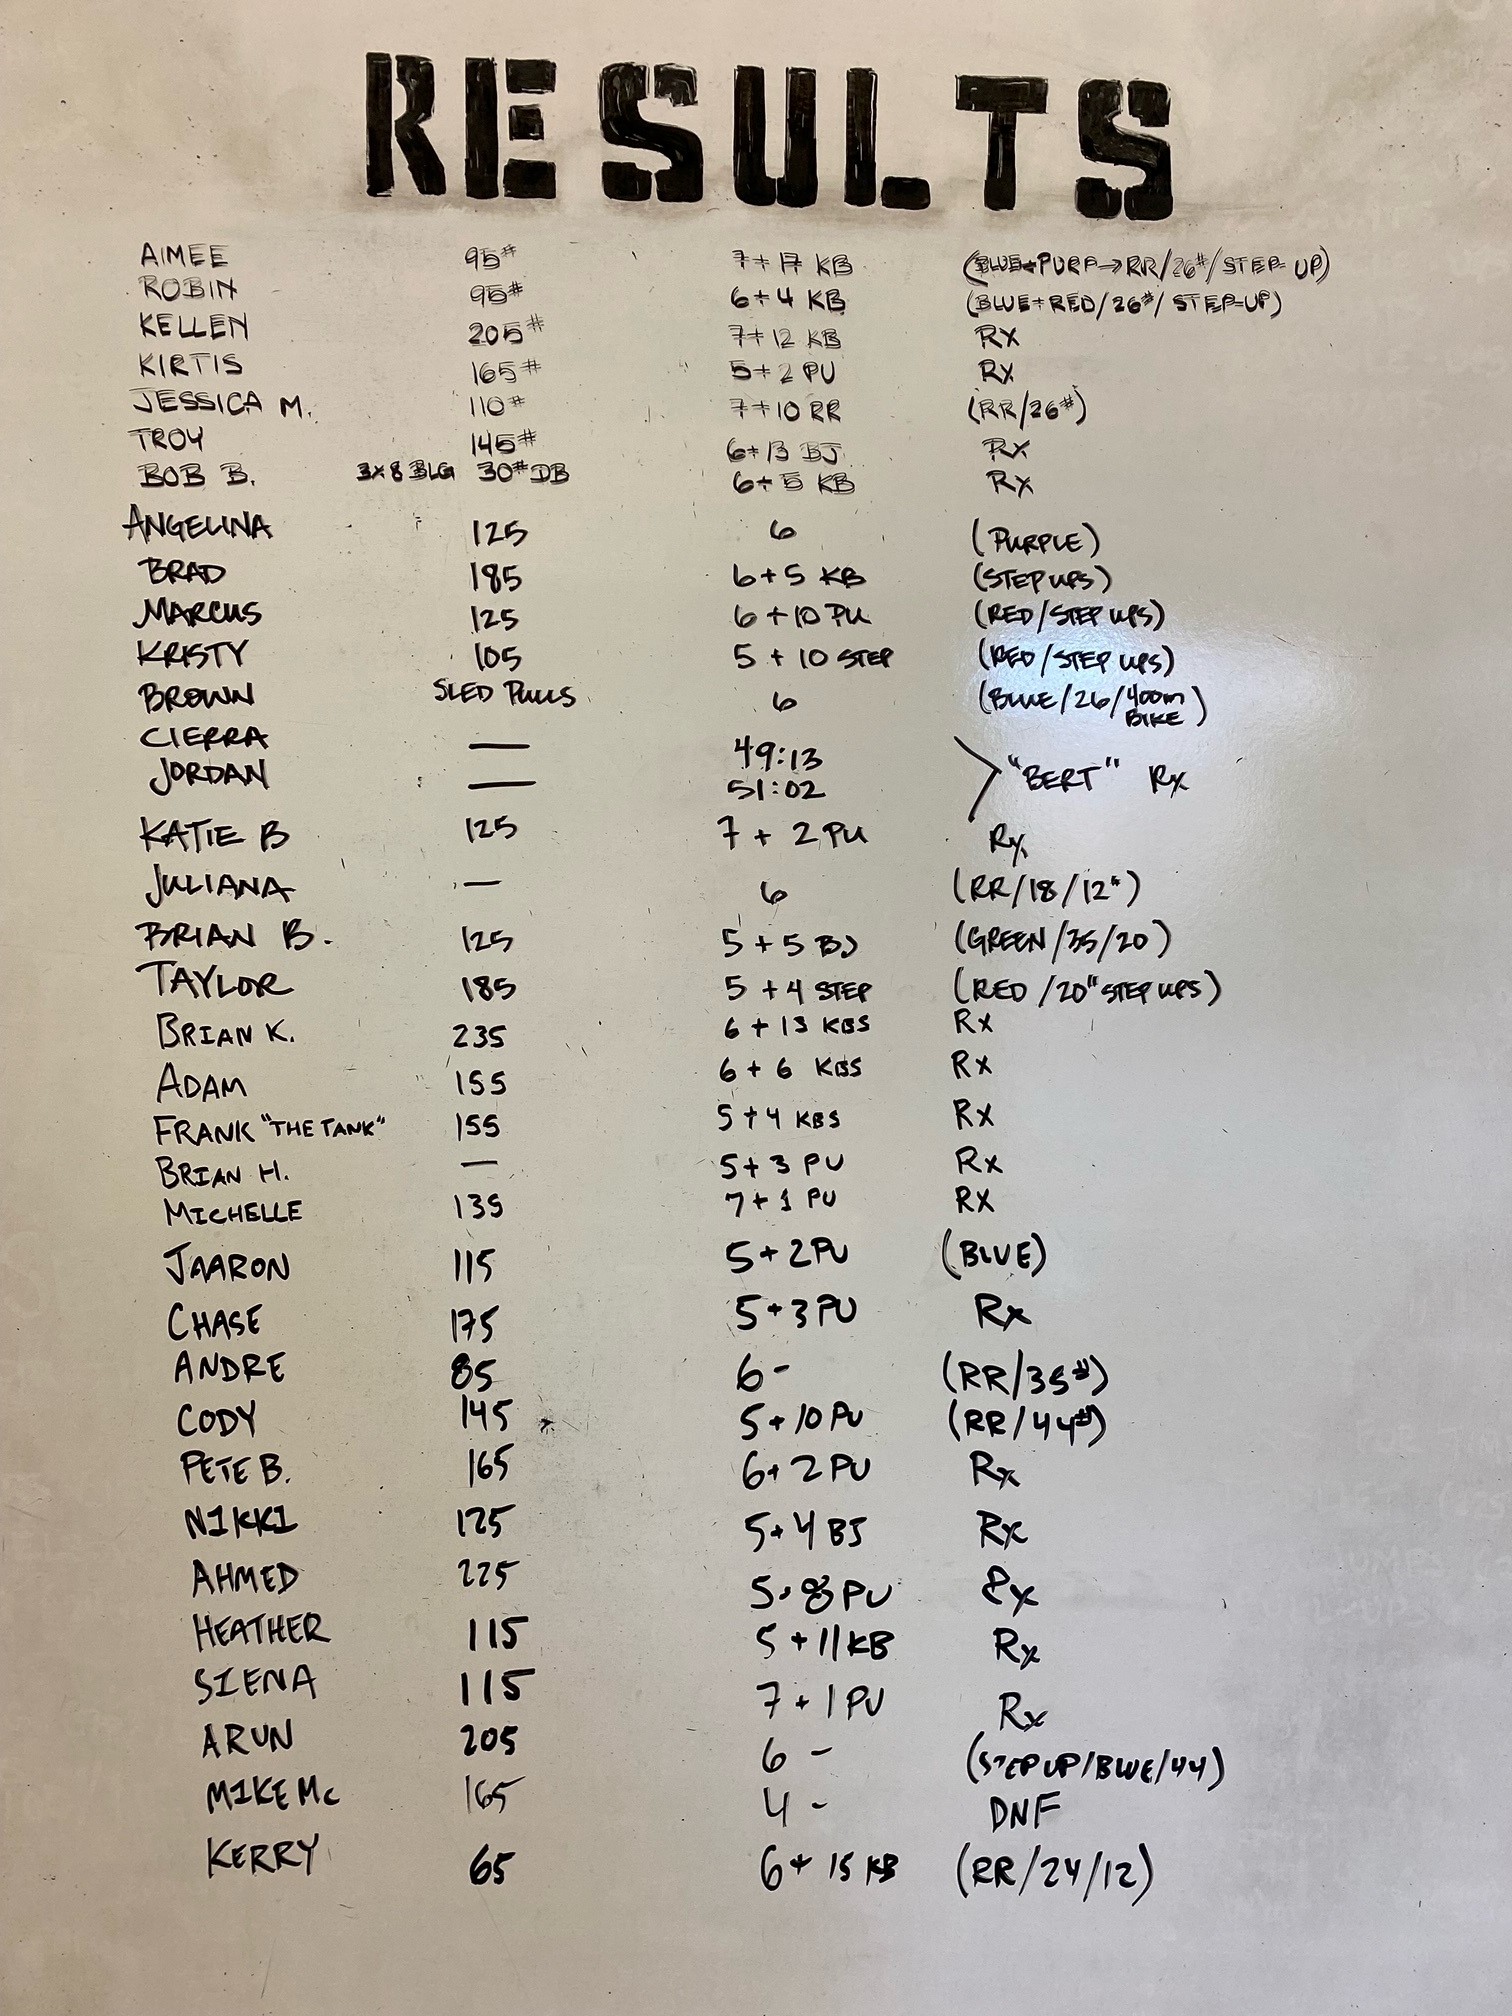 RESULTS
AIMEE 95# 7+17 KB (BLUE+PURP→RR/26#/STEP-UP)
ROBIN 95# 6+4 KB (BLUE+RED/26#/STEP-UP)
KELLEN 205# 7+12 KB Rx
KIRTIS 165# 5+2 PU Rx
JESSICA M. 110# 7+10 RR (RR/26#)
TROY 145# 6+13 BJ Rx
BOB B. 3x8 BLG 30# DB 6+5 KB Rx
ANGELINA 125 6 (PURPLE)
BRAD 185 6+5 KB (STEP UPS)
MARCUS 125 6+10 PU (RED/STEP UPS)
KRISTY 105 5+10 STEP (RED/STEP UPS)
BROWN SLED PULLS 6 (BLUE/26/400m BIKE)
CIERRA — 49:13
JORDAN — 51:02 "BERT" Rx
KATIE B 125 7+2 PU Rx
JULIANA — 6 (RR/18/12")
BRIAN B. 125 5+5 BJ (GREEN/35/20)
TAYLOR 185 5+4 STEP (RED/20" STEP UPS)
BRIAN K. 235 6+13 KBS Rx
ADAM 155 6+6 KBS Rx
FRANK "THE TANK" 155 5+4 KBS Rx
BRIAN H. — 5+3 PU Rx
MICHELLE 135 7+1 PU Rx
JAARON 115 5+2 PU (BLUE)
CHASE 175 5+3 PU Rx
ANDRE 85 6- (RR/35#)
CODY 145 5+10 PU (RR/44#)
PETE B. 165 6+2 PU Rx
NIKKI 125 5+4 BJ Rx
AHMED 225 5+8 PU Rx
HEATHER 115 5+11 KB Rx
SIENA 115 7+1 PU Rx
ARUN 205 6- (STEP UP/BLUE/44)
MIKE Mc 165 4- DNF
KERRY 65 6+15 KB (RR/24/12)